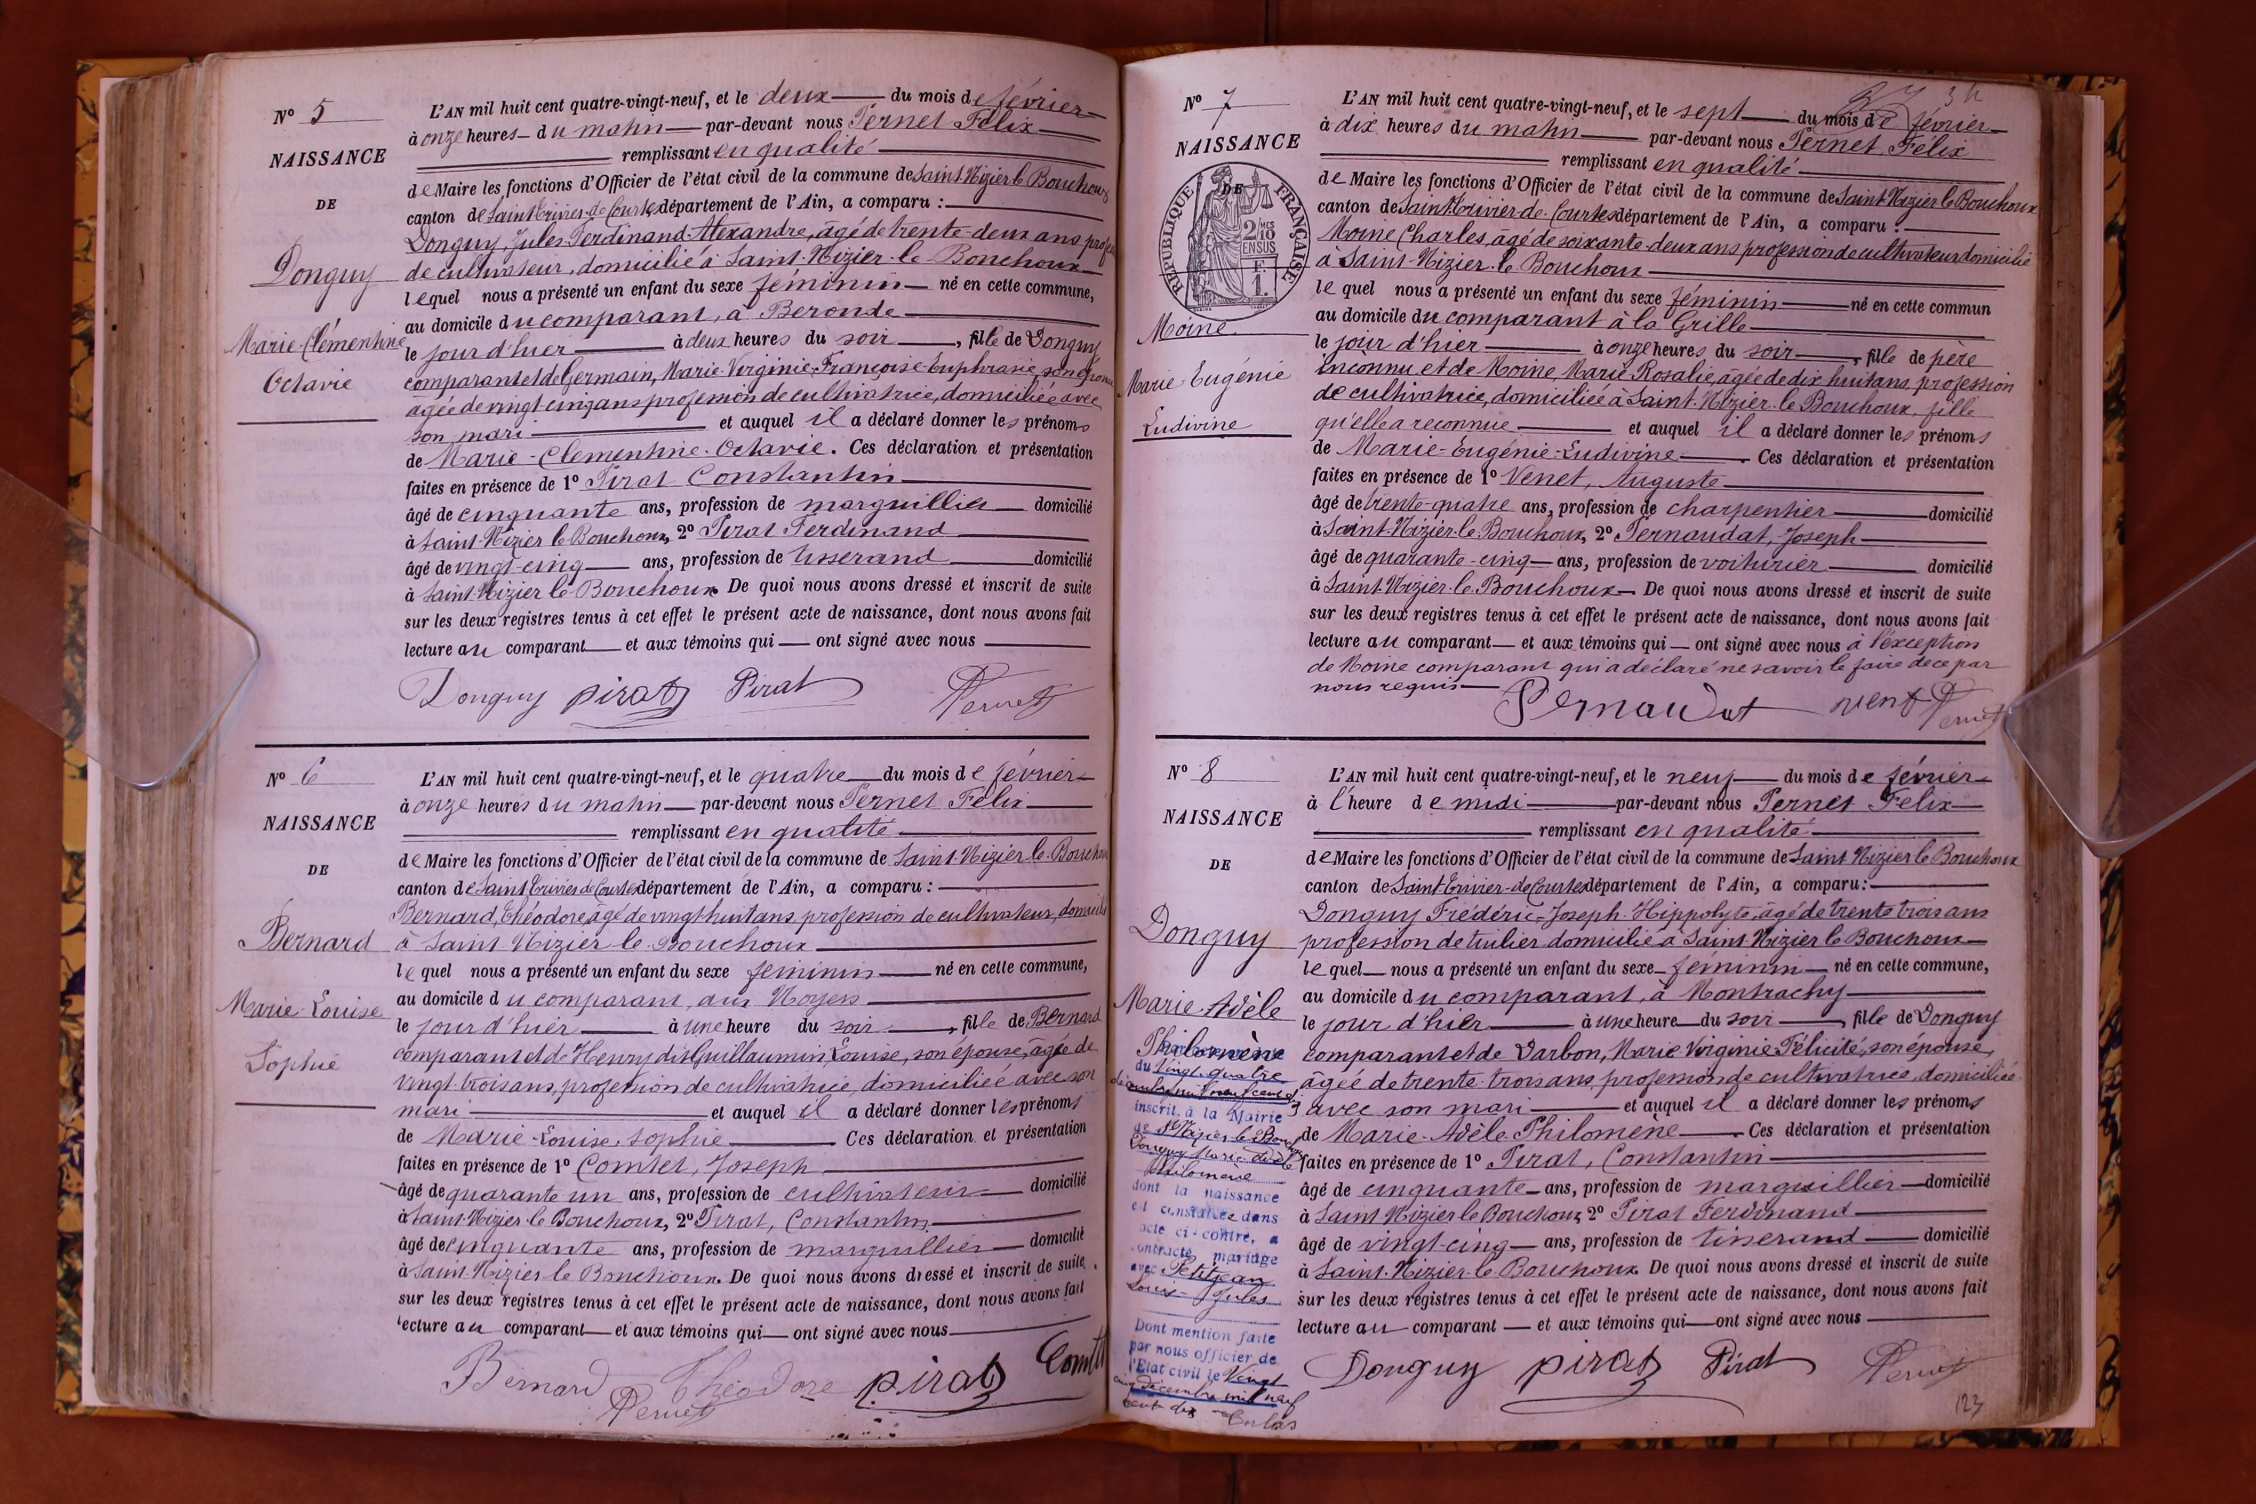 N° 5
NAISSANCE
DE
Donguy
Marie-Clémentine
Octavie
L'AN mil huit cent quatre-vingt-neuf, et le deux du mois de février
à onze heures du matin par-devant nous Pernet Félix
remplissant en qualité
de Maire les fonctions d'Officier de l'état civil de la commune de Saint Nizier le Bouchoux
canton de Saint Trivier-de-Courtes département de l'Ain, a comparu :
Donguy Jules-Ferdinand-Alexandre, âgé de trente-deux ans, profes
de cultivateur, domicilié à Saint-Nizier-le-Bouchoux
lequel nous a présenté un enfant du sexe féminin né en cette commune,
au domicile du comparant, à Beronde
le jour d'hier à deux heures du soir, fille de Donguy
comparant et de Germain, Marie-Virginie-Françoise-Euphrasie, son épouse
âgée de vingt cinq ans profession de cultivatrice, domiciliée avec
son mari et auquel il a déclaré donner les prénoms
de Marie-Clementine-Octavie. Ces déclaration et présentation
faites en présence de 1° Pirat Constantin
âgé de cinquante ans, profession de marguillier domicilié
à Saint-Nizier le Bouchoux, 2° Pirat Ferdinand
âgé de vingt-cinq ans, profession de tisserand domicilié
à Saint-Nizier le Bouchoux De quoi nous avons dressé et inscrit de suite
sur les deux registres tenus à cet effet le présent acte de naissance, dont nous avons fait
lecture au comparant et aux témoins qui ont signé avec nous
Donguy pirat Pirat Pernet
N° 6
NAISSANCE
DE
Bernard
Marie-Louise
Sophie
L'AN mil huit cent quatre-vingt-neuf, et le quatre du mois de février
à onze heures du matin par-devant nous Pernet Félix
remplissant en qualité
de Maire les fonctions d'Officier de l'état civil de la commune de Saint-Nizier-le-Bouchoux
canton de Saint Trivier de Courtes département de l'Ain, a comparu :
Bernard, Théodore âgé de vingt huit ans, profession de cultivateur, domicilié
à Saint Nizier le Bouchoux
lequel nous a présenté un enfant du sexe féminin né en cette commune,
au domicile du comparant, aux Noyers
le jour d'hier à une heure du soir, fille de Bernard
comparant et de Henry dit Guillaumin, Louise, son épouse, âgée de
vingt-trois ans, profession de cultivatrice, domiciliée avec son
mari et auquel il a déclaré donner les prénoms
de Marie-Louise, Sophie Ces déclaration et présentation
faites en présence de 1° Comtet, Joseph
âgé de quarante un ans, profession de cultivateur domicilié
à Saint-Nizier-le Bouchoux, 2° Pirat, Constantin
âgé de cinquante ans, profession de marguillier domicilié
à Saint-Nizier le Bouchoux. De quoi nous avons dressé et inscrit de suite
sur les deux registres tenus à cet effet le présent acte de naissance, dont nous avons fait
lecture au comparant et aux témoins qui ont signé avec nous
Bernard Théodore pirat Comtet
Pernet
N° 7
NAISSANCE
DE
RÉPUBLIQUE FRANÇAISE
2/10 MES
EN SUS
F.
1.
Moine
Marie Eugénie
Ludivine
L'AN mil huit cent quatre-vingt-neuf, et le sept du mois de février
à dix heures du matin par-devant nous Pernet Félix
remplissant en qualité
de Maire les fonctions d'Officier de l'état civil de la commune de Saint-Nizier le Bouchoux
canton de Saint-Trivier-de-Courtes département de l'Ain, a comparu :
Moine Charles, âgé de soixante-deux ans profession de cultivateur domicilié
à Saint-Nizier-le Bouchoux
lequel nous a présenté un enfant du sexe féminin né en cette commun
au domicile du comparant à la Grille
le jour d'hier à onze heures du soir, fille de père
inconnu et de Moine, Marie Rosalie, âgée de dix huit ans, profession
de cultivatrice, domiciliée à Saint-Nizier-le Bouchoux, fille
qu'elle a reconnue et auquel il a déclaré donner les prénoms
de Marie-Eugénie-Ludivine. Ces déclaration et présentation
faites en présence de 1° Venet, Auguste
âgé de trente-quatre ans, profession de charpentier domicilié
à Saint-Nizier-le Bouchoux, 2° Pernaudat, Joseph
âgé de quarante-cinq ans, profession de voiturier domicilié
à Saint-Nizier-le-Bouchoux De quoi nous avons dressé et inscrit de suite
sur les deux registres tenus à cet effet le présent acte de naissance, dont nous avons fait
lecture au comparant et aux témoins qui ont signé avec nous à l'exception
de Moine comparant qui a déclaré ne savoir le faire de ce par
nous requis
Pernaudat venet Pernet
N° 8
NAISSANCE
DE
Donguy
Marie-Adèle
Philomène
du vingt-quatre
décembre mil neuf cent
inscrit à la Mairie
de St Nizier le Bouchoux
Donguy Marie Adèle
Philomène
dont la naissance
est constatée dans
acte ci-contre, a
contracté mariage
avec Petitjean
Louis-Jules
Dont mention faite
par nous officier de
l'Etat civil le Vingt
cinq décembre mil neuf
cent dix
L'AN mil huit cent quatre-vingt-neuf, et le neuf du mois de février
à l'heure de midi par-devant nous Pernet Félix
remplissant en qualité
de Maire les fonctions d'Officier de l'état civil de la commune de Saint Nizier le Bouchoux
canton de Saint-Trivier-de Courtes département de l'Ain, a comparu :
Donguy Frédéric-Joseph-Hippolyte, âgé de trente trois ans
profession de tuilier domicilié à Saint-Nizier le Bouchoux
lequel nous a présenté un enfant du sexe féminin né en cette commune,
au domicile du comparant, à Montrachy
le jour d'hier à une heure du soir, fille de Donguy
comparant et de Darbon, Marie Virginie Félicité, son épouse,
âgée de trente-trois ans, profession de cultivatrice, domiciliée
avec son mari et auquel il a déclaré donner les prénoms
de Marie-Adèle Philomène. Ces déclaration et présentation
faites en présence de 1° Pirat, Constantin
âgé de cinquante ans, profession de marguillier domicilié
à Saint Nizier le Bouchoux 2° Pirat Ferdinand
âgé de vingt-cinq ans, profession de tisserand domicilié
à Saint-Nizier-le-Bouchoux De quoi nous avons dressé et inscrit de suite
sur les deux registres tenus à cet effet le présent acte de naissance, dont nous avons fait
lecture au comparant et aux témoins qui ont signé avec nous
Donguy pirat Pirat Pernet
123